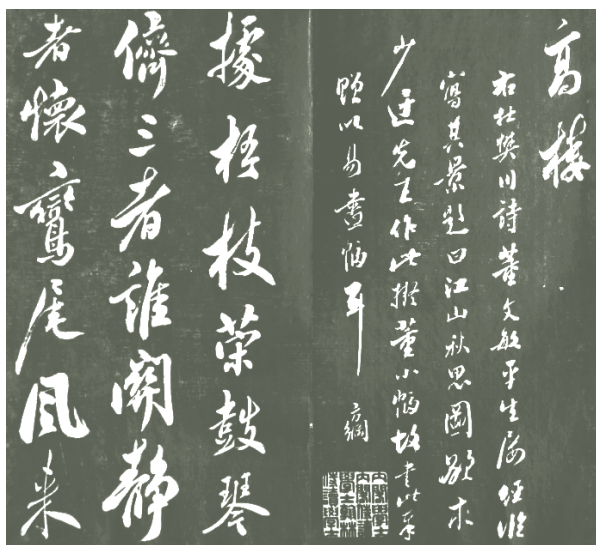 高樓
右杜樊川詩董文敏平生屢經
寫其景題曰江山秋思圖欲求
少迂先生作此擬董小幀故書此
贈以易畫幀耳
方綱
據梧枝榮鼓琴
儕三者誰關靜
者懷鸞尾風來